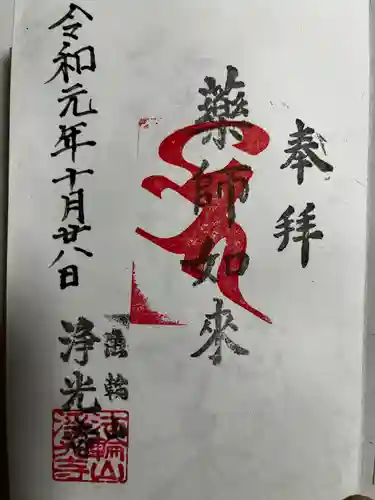 奉拝
薬師如來
令和元年十月廿八日
輪山
浄光寺